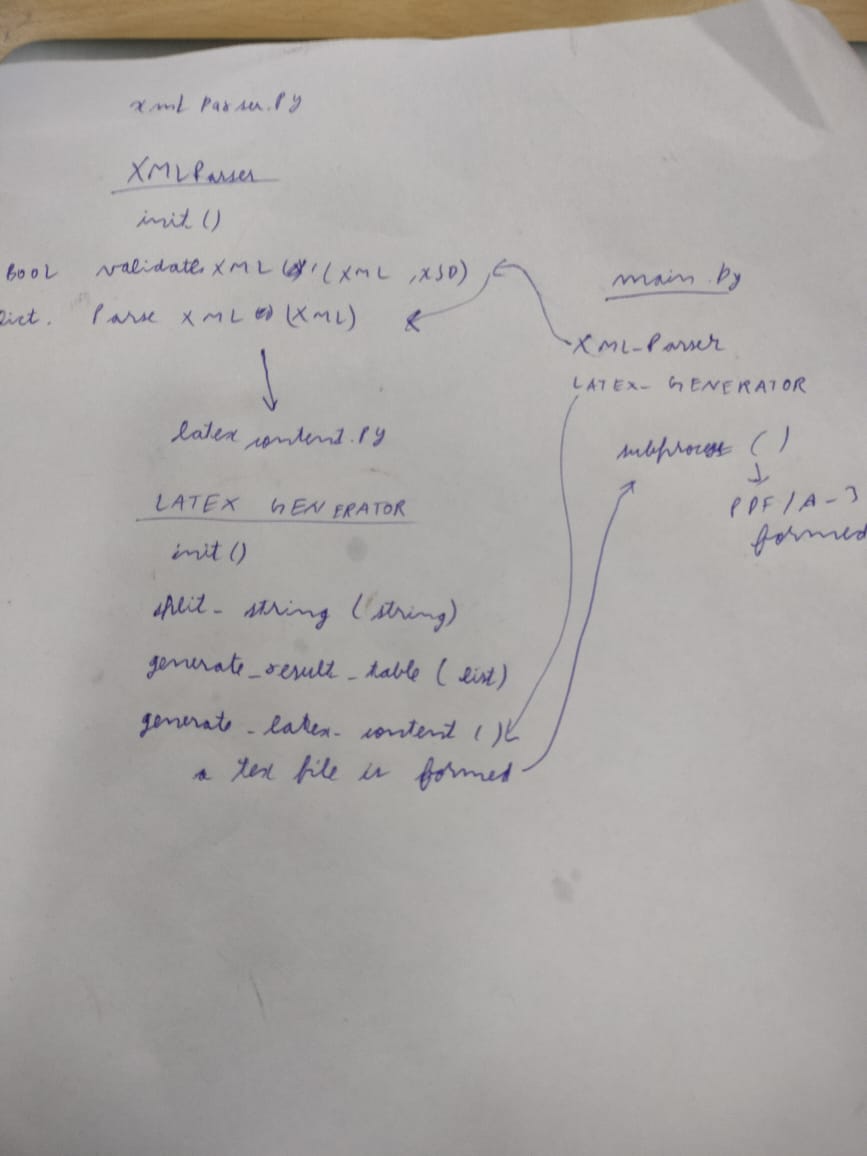 xml Parser.Py
XMLParser
init()
Bool validate XML (XML, XSD)
Dict. Parse XML (XML)
latex content.Py
LATEX GENERATOR
init()
split_string (string)
generate_result_table (list)
generate_latex_content ()
a tex file is formed
main.py
XML-Parser
LATEX-GENERATOR
subprocess ()
PDF/A-3
formed